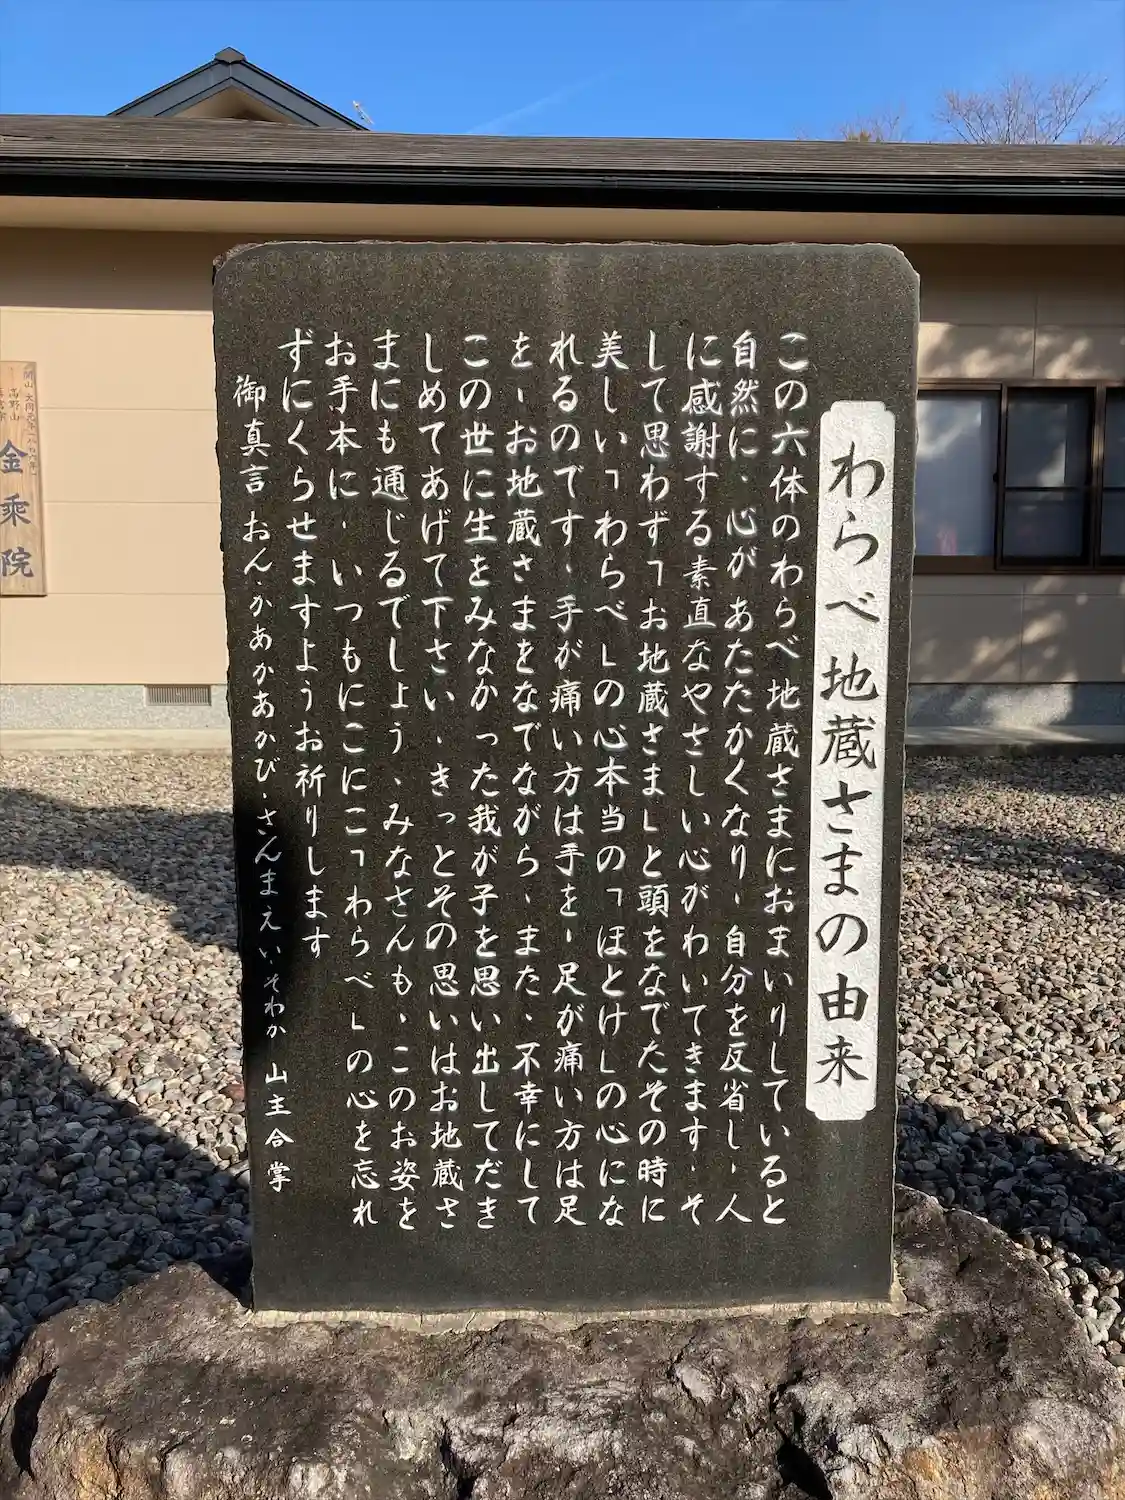 わらべ地蔵さまの由来
この六体のわらべ地蔵さまにおまいりしていると
自然に、心があたたかくなり、自分を反省し、人
に感謝する素直なやさしい心がわいてきます。そ
して思わず「お地蔵さま」と頭をなでたその時に
美しい「わらべ」の心本当の「ほとけ」の心にな
れるのです、手が痛い方は手を、足が痛い方は足
を、お地蔵さまをなでながら、また、不幸にして
この世に生をみなかった我が子を思い出してだき
しめてあげて下さい、きっとその思いはお地蔵さ
まにも通じるでしょう、みなさんも、このお姿を
お手本に、いつもにこにこ「わらべ」の心を忘れ
ずにくらせますようお祈りします
御真言 おん・かあかあかび・さんまえいそわか 山主合掌
開山
高野山
金乗院